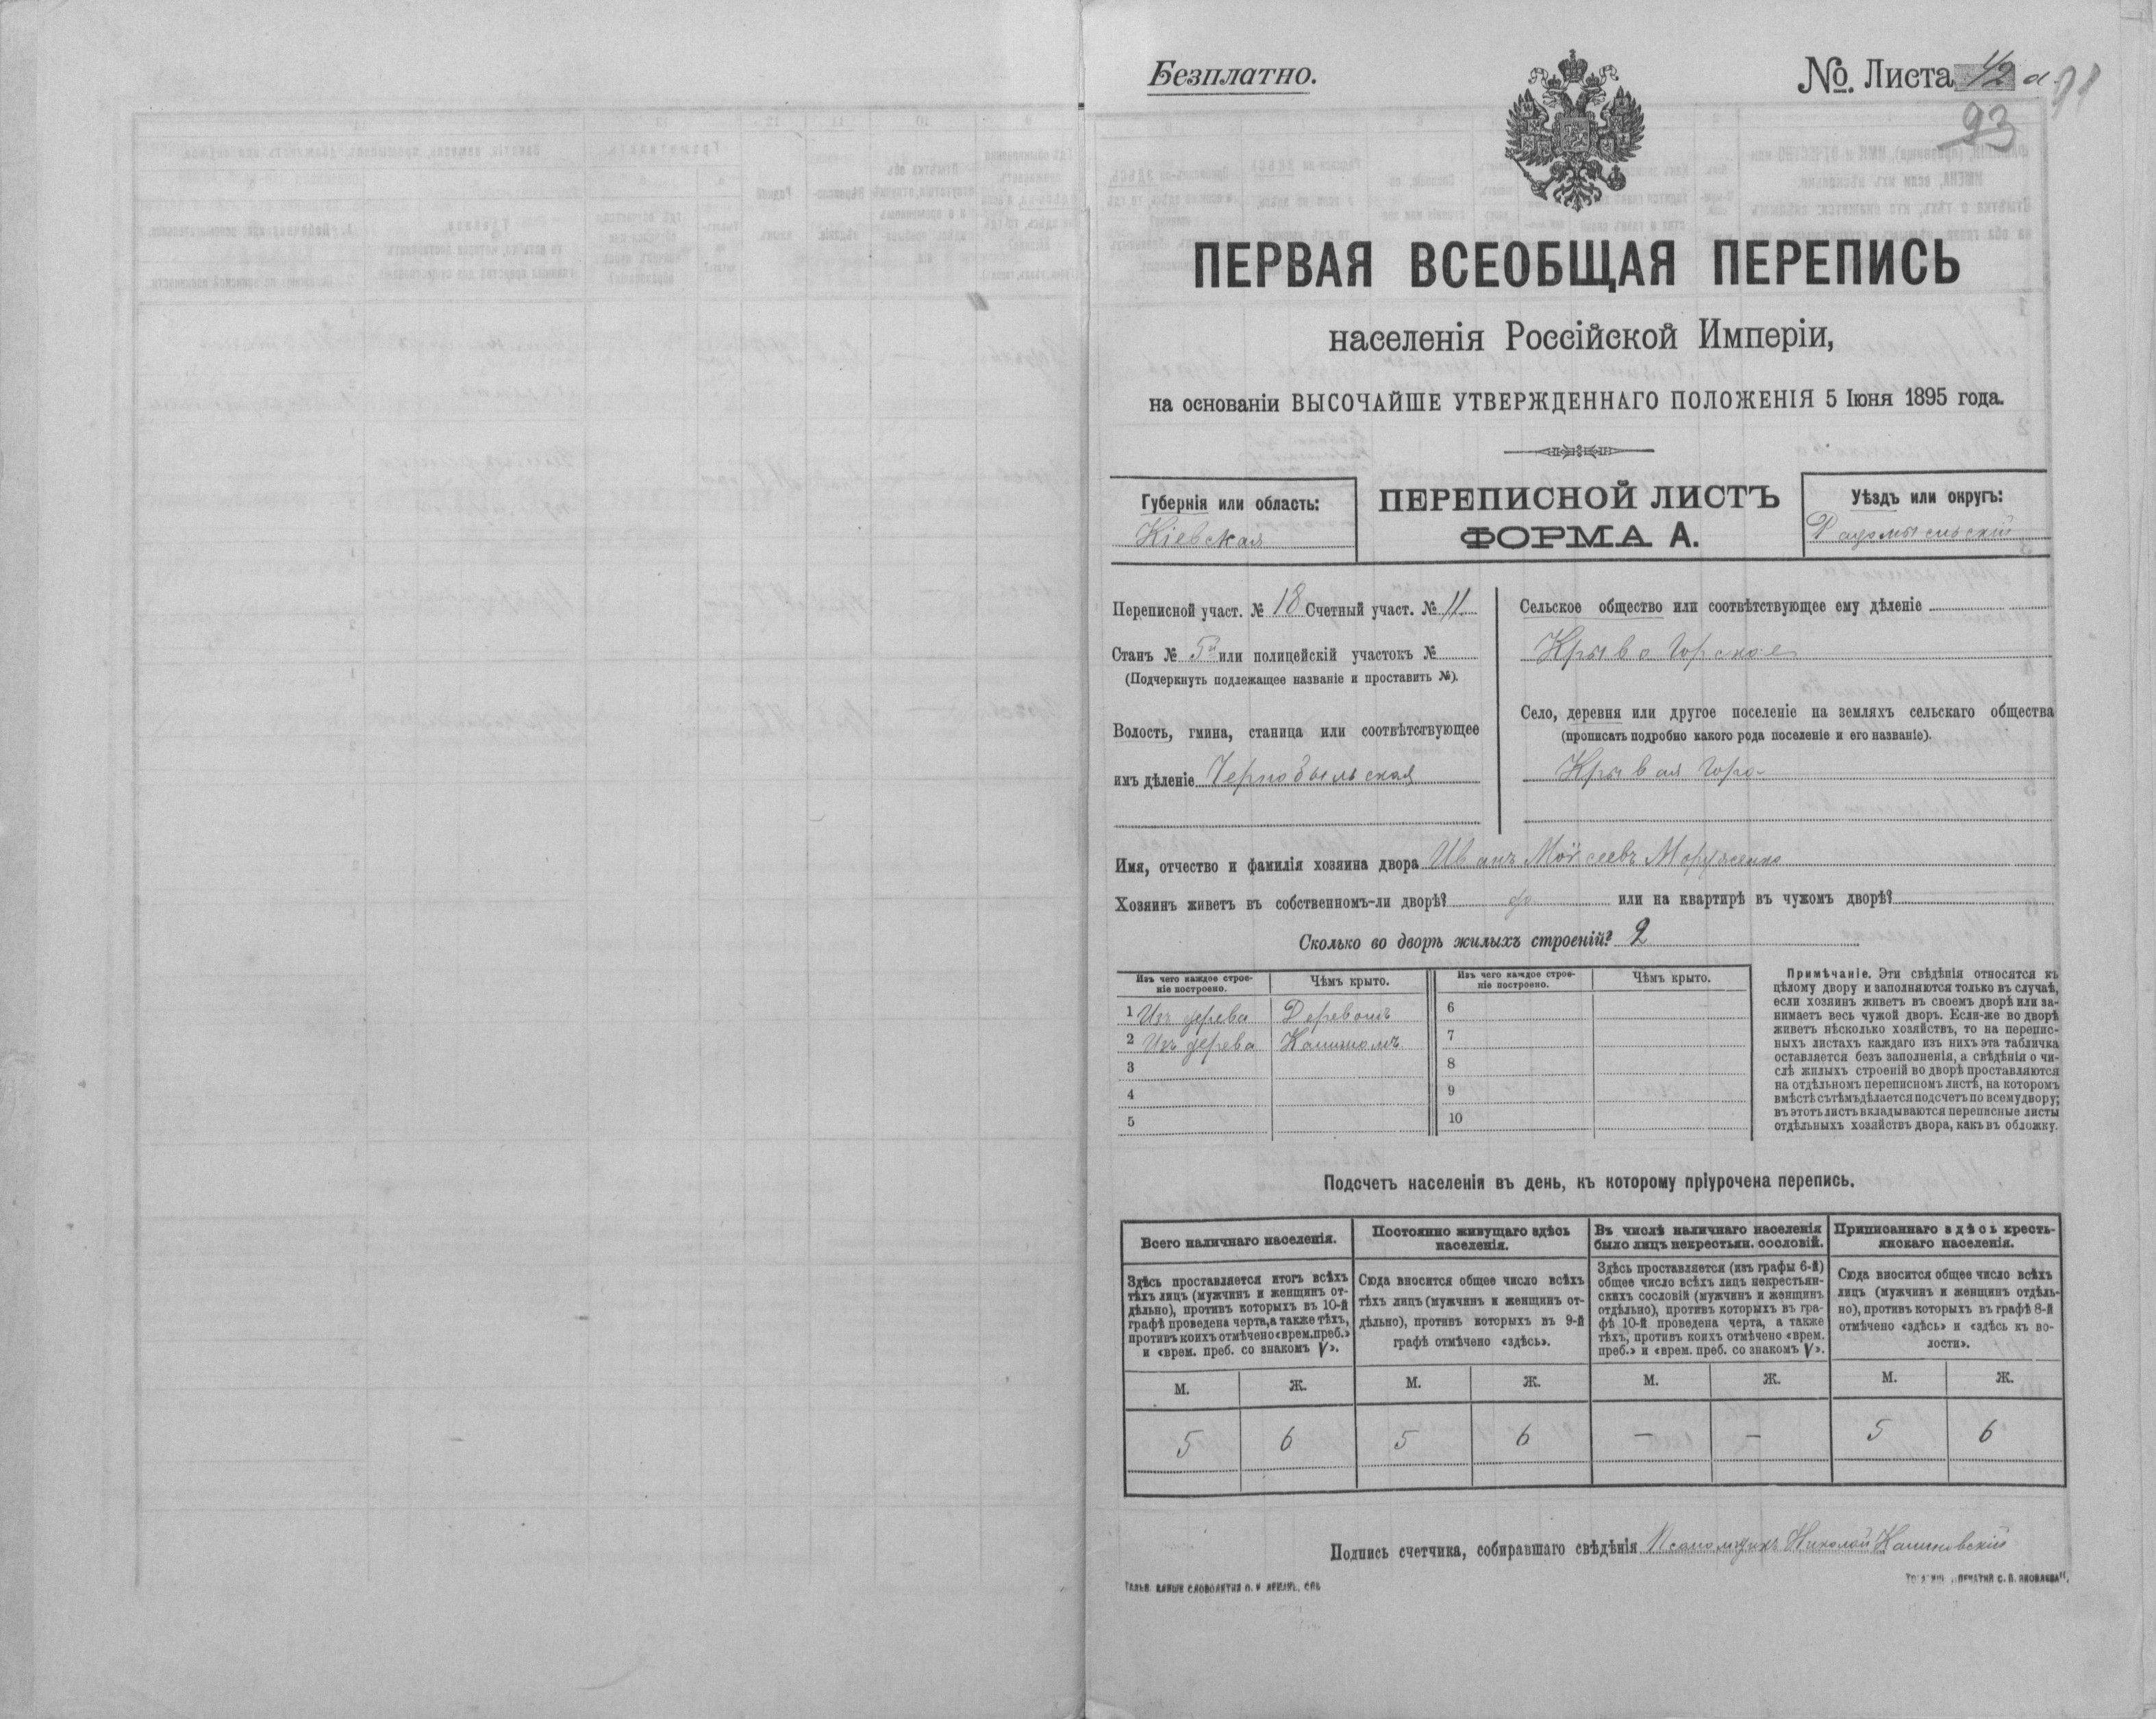 Безплатно.
№. Листа 42 а.
91
93
ПЕРВАЯ ВСЕОБЩАЯ ПЕРЕПИСЬ
населенія Россійской Имперіи,
на основаніи ВЫСОЧАЙШЕ УТВЕРЖДЕННАГО ПОЛОЖЕНІЯ 5 Іюня 1895 года.
Губернія или область:
Кіевская
ПЕРЕПИСНОЙ ЛИСТЪ
ФОРМА А.
Уѣздъ или округъ:
Радомысльскій
Переписной участ. № 18 Счетный участ. № 11
Станъ № 5й или полицейскій участокъ №
(Подчеркнуть подлежащее названіе и проставить №).
Волость, гмина, станица или соотвѣтствующее
имъ дѣленіе Чернобыльская
Сельское общество или соотвѣтствующее ему дѣленіе
Крывогорское
Село, деревня или другое поселеніе на земляхъ сельскаго общества
(прописать подробно какого рода поселеніе и его названіе).
Крывая Гора
Имя, отчество и фамилія хозяина двора Иванъ Моѵсеевъ
Хозяинъ живетъ въ собственномъ-ли дворѣ? да или на квартирѣ въ чужомъ дворѣ?
Сколько во дворѣ жилыхъ строеній? 2
Изъ чего каждое строе-
ніе построено.
Чѣмъ крыто.
Изъ чего каждое строе-
ніе построено.
Чѣмъ крыто.
1 Изъ дерева Деревомъ 6
2 Изъ дерева Камышомъ 7
3 8
4 9
5 10
Примѣчаніе. Эти свѣдѣнія относятся къ
цѣлому двору и заполняются только въ случаѣ,
если хозяинъ живетъ въ своемъ дворѣ или за-
нимаетъ весь чужой дворъ. Если-же во дворѣ
живетъ нѣсколько хозяйствъ, то на перепис-
ныхъ листахъ каждаго изъ нихъ эта табличка
оставляется безъ заполненія, а свѣдѣнія о чи-
слѣ жилыхъ строеній во дворѣ проставляются
на отдѣльномъ переписномъ листѣ, на которомъ
вмѣстѣ съ тѣмъ дѣлается подсчетъ по всему двору;
въ этотъ листъ вкладываются переписные листы
отдѣльныхъ хозяйствъ двора, какъ въ обложку.
Подсчетъ населенія въ день, къ которому пріурочена перепись.
Всего наличнаго населенія.
Здѣсь проставляется итогъ всѣхъ
тѣхъ лицъ (мужчинъ и женщинъ от-
дѣльно), противъ которыхъ въ 10-й
графѣ проведена черта, а также тѣхъ,
противъ коихъ отмѣчено «врем. преб.»
и «врем. преб. со знакомъ V».
Постоянно живущаго здѣсь
населенія.
Сюда вносится общее число всѣхъ
тѣхъ лицъ (мужчинъ и женщинъ от-
дѣльно), противъ которыхъ въ 9-й
графѣ отмѣчено «здѣсь».
Въ числѣ наличнаго населенія
было лицъ некрестьян. сословій.
Здѣсь проставляется (изъ графы 6-й)
общее число всѣхъ лицъ некрестьян-
скихъ сословій (мужчинъ и женщинъ
отдѣльно), противъ которыхъ въ гра-
фѣ 10-й проведена черта, а также
тѣхъ, противъ коихъ отмѣчено «врем.
преб.» и «врем. преб. со знакомъ V».
Приписаннаго здѣсь кресть-
янскаго населенія.
Сюда вносится общее число всѣхъ
лицъ (мужчинъ и женщинъ отдѣль-
но), противъ которыхъ въ графѣ 8-й
отмѣчено «здѣсь» и «здѣсь къ во-
лости».
М. Ж. М. Ж. М. Ж. М. Ж.
5 6 5 6 — — 5 6
Подпись счетчика, собиравшаго свѣдѣнія Псаломщикъ Николай